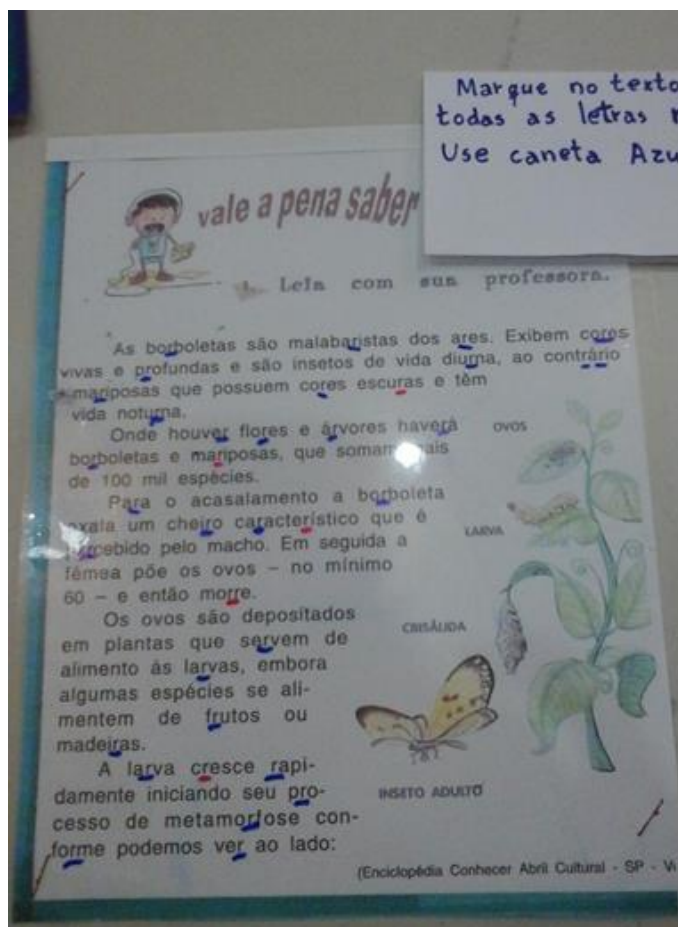 Marque no texto
todas as letras
Use caneta
vale a pena saber
Leia com sua professora.
As borboletas são malabaristas dos ares. Exibem cores
vivas e profundas e são insetos de vida diurna, ao contrário
mariposas que possuem cores escuras e têm
vida noturna.
Onde houver flores e árvores haverá
borboletas e mariposas, que somam mais
de 100 mil espécies.
Para o acasalamento a borboleta
exala um cheiro característico que é
percebido pelo macho. Em seguida a
fêmea põe os ovos – no mínimo
60 – e então morre.
Os ovos são depositados
em plantas que servem de
alimento ás larvas, embora
algumas espécies se ali-
mentem de frutos ou
madeiras.
A larva cresce rapi-
damente iniciando seu pro-
cesso de metamorfose con-
forme podemos ver ao lado:
ovos
LARVA
CRISÁLIDA
INSETO ADULTO
(Enciclopédia Conhecer Abril Cultural - SP -